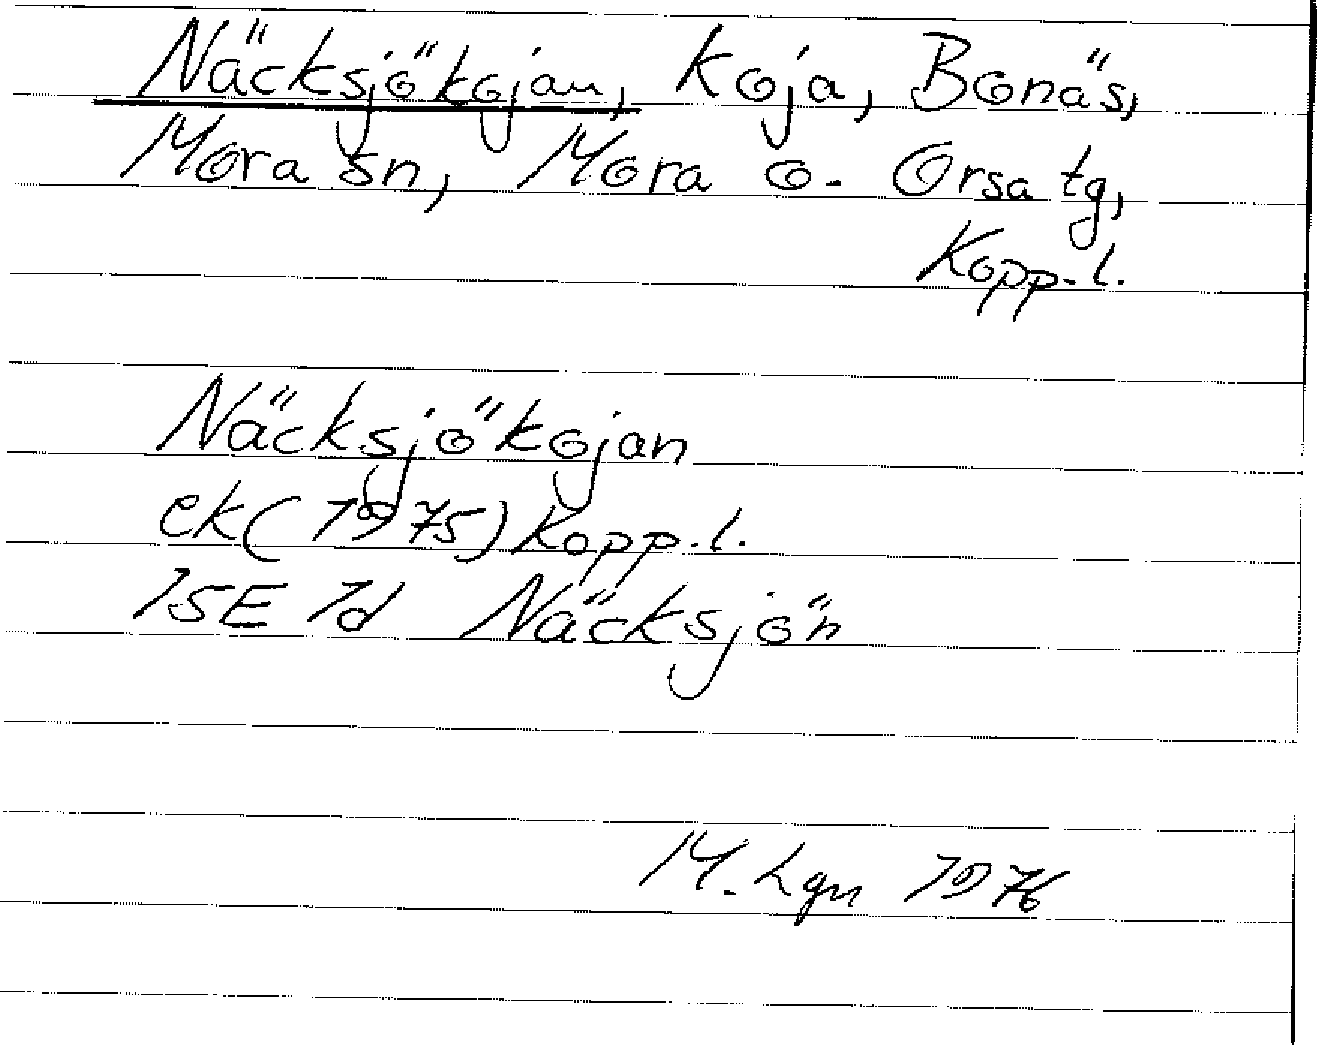 Näcksjökojan, Koja, Bonäs,
Mora sn, Mora o. Orsa tg,
Kopp. l.
Näcksjökojan
ek (1975) Kopp. l.
15E 1d Näcksjön
M. Lgn 1976